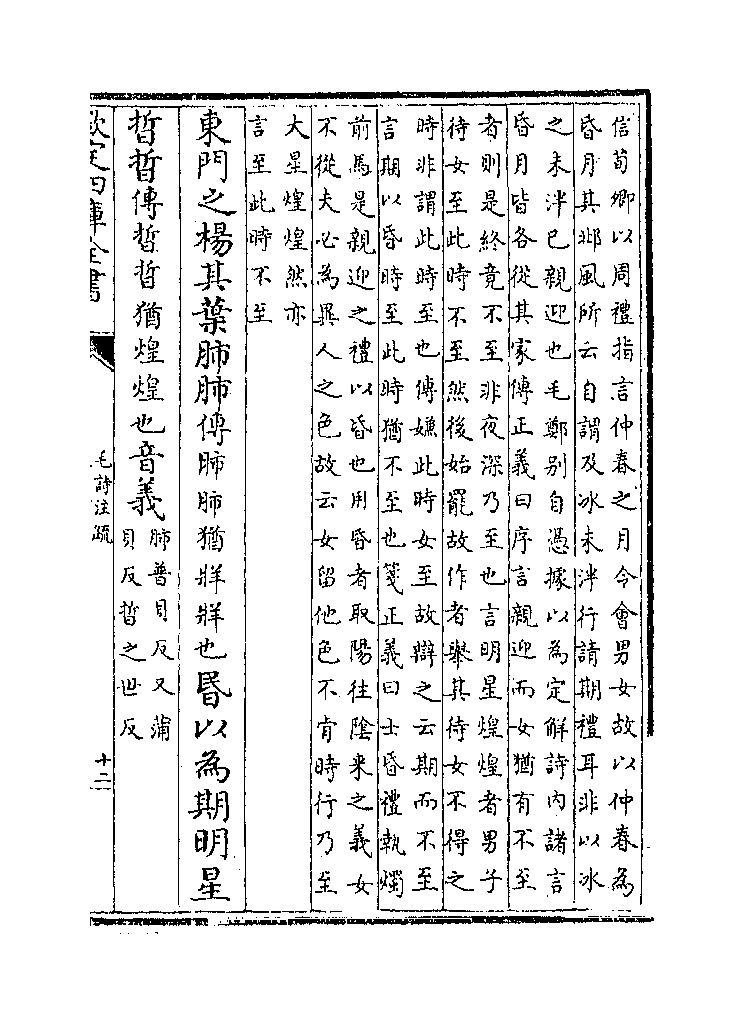 信荀卿以周禮指言仲春之月令會男女故以仲春為
昏月其邶風所云自謂及冰未泮行請期禮耳非以冰
之未泮已親迎也毛鄭别自憑據以為定解詩內諸言
昏月皆各從其家傳正義曰序言親迎而女猶有不至
者則是終竟不至非夜深乃至也言明星煌煌者男子
待女至此時不至然後始罷故作者舉其待女不得之
時非謂此時至也傳嫌此時女至故辯之云期而不至
言期以昏時至此時猶不至也箋正義曰士昏禮執燭
前馬是親迎之禮以昏也用昏者取陽往陰来之義女
不從夫必為異人之色故云女留他色不肯時行乃至
大星煌煌然亦
言至此時不至
東門之楊其葉肺肺傳肺肺猶牂牂也昏以為期明星
晢晢傳晢晢猶煌煌也音義
肺普貝反又蒲
貝反晢之世反
欽定四庫全書
毛詩注疏
十二